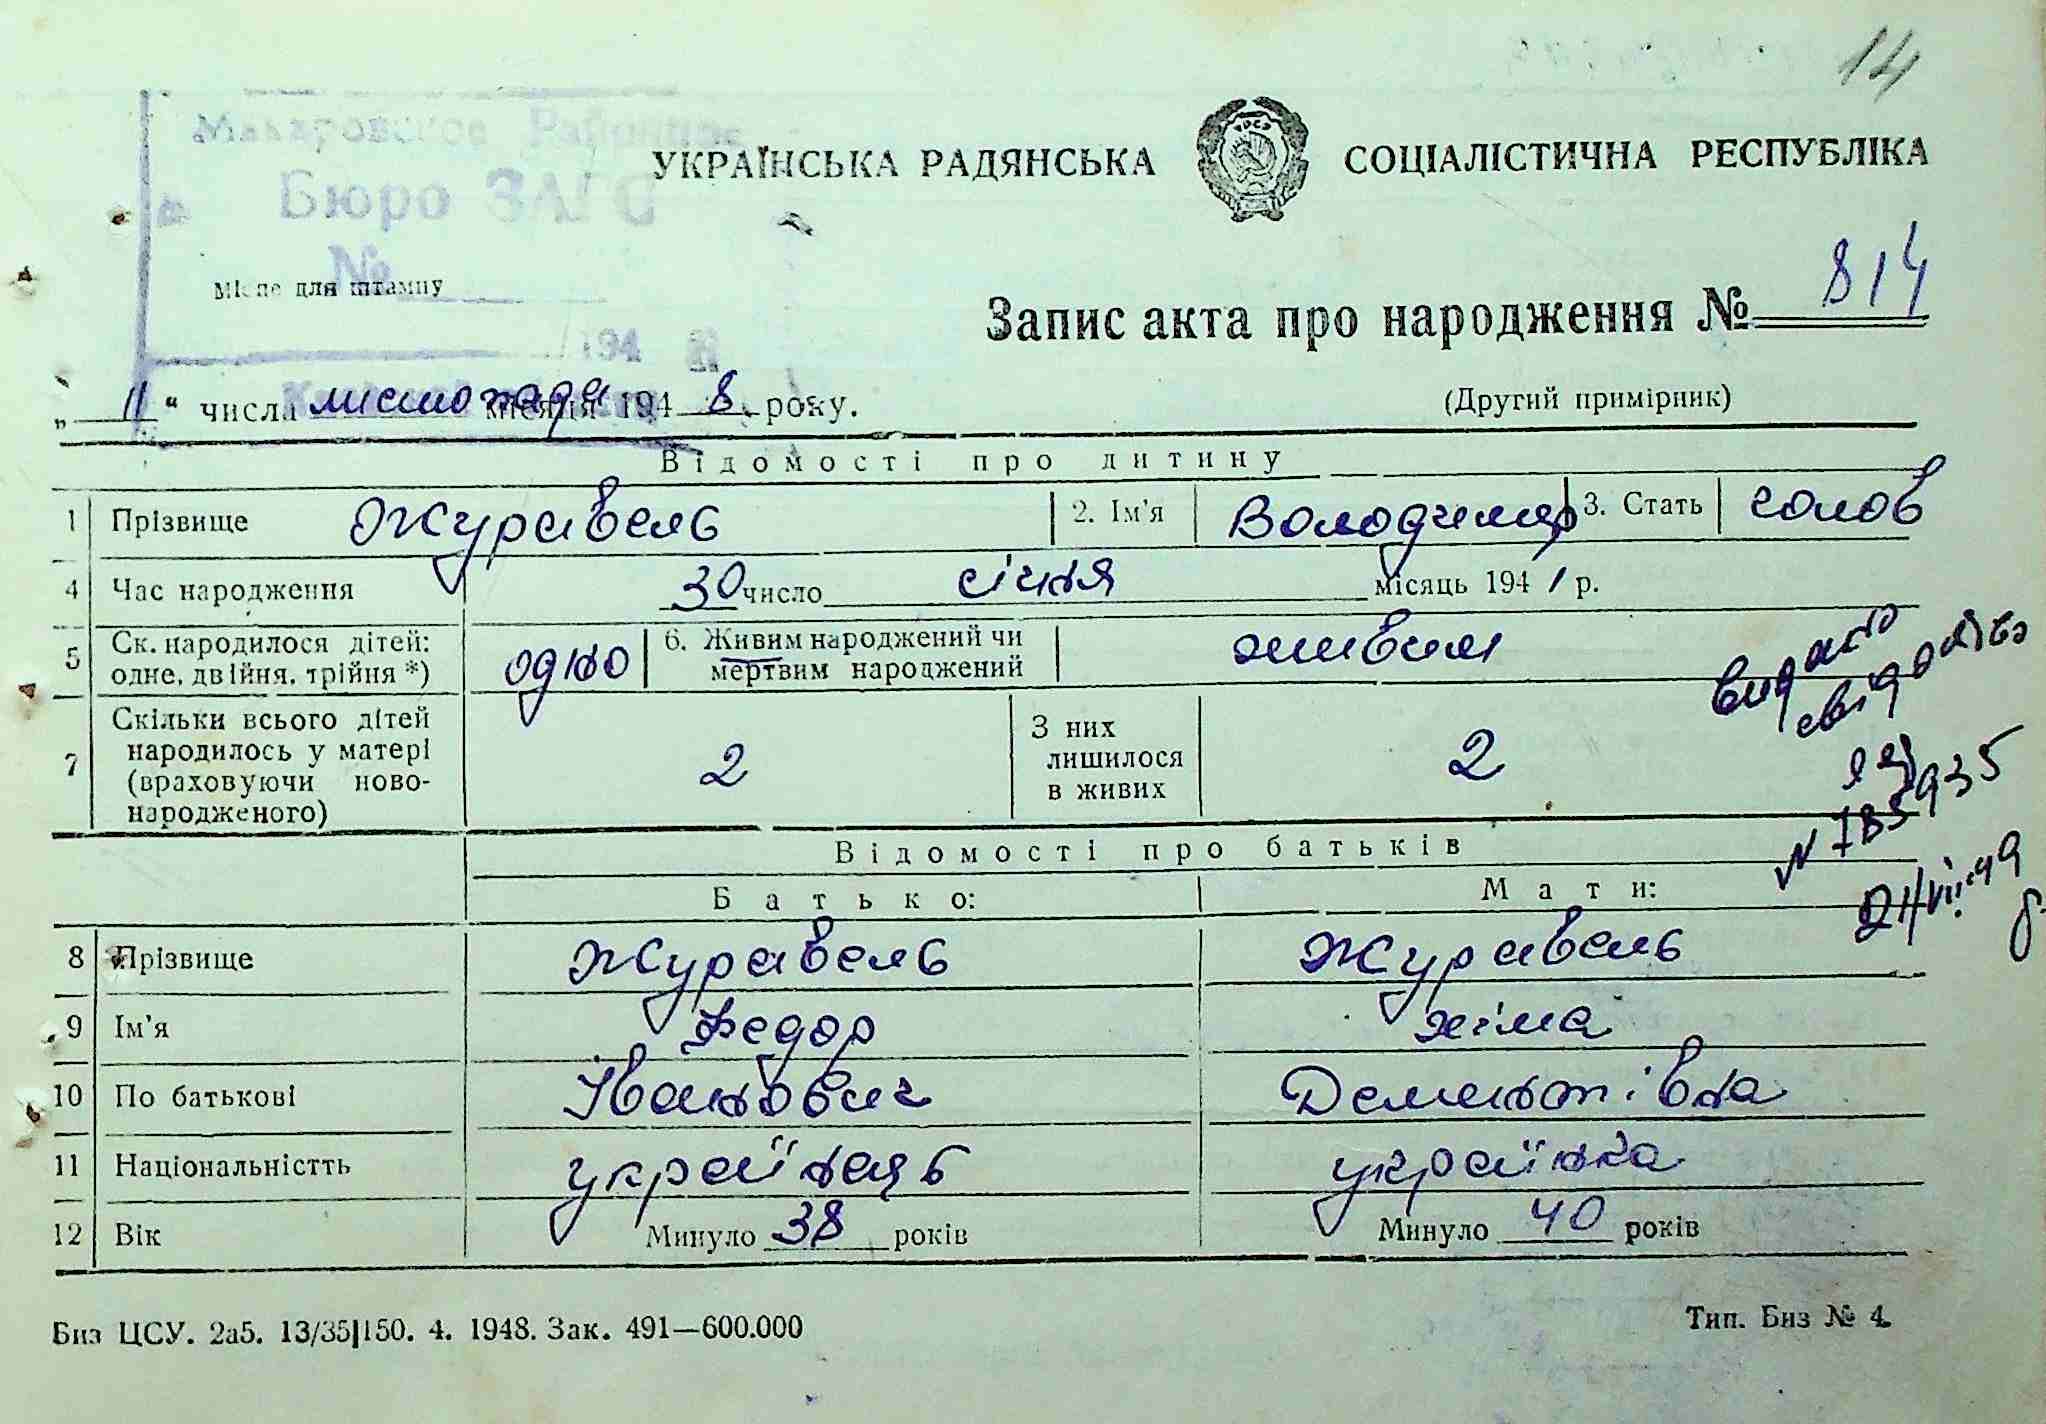 14
Макаровское Районное
Бюро ЗАГС
№
194
УКРАЇНСЬКА РАДЯНСЬКА СОЦІАЛІСТИЧНА РЕСПУБЛІКА
Місце для штампу
Запис акта про народження № 814
„ 11 “ числа листопада місяця 194 8 року.
(Другий примірник)
Відомості про дитину
1 Прізвище Журавель 2. Ім'я Володимир 3. Стать чолов
4 Час народження 30 число січня місяць 194 1 р.
5 Ск. народилося дітей: одне, двійня, трійня *) одно 6. Живим народжений чи мертвим народжений живим
7 Скільки всього дітей народилось у матері (враховуючи ново-народженого) 2 З них лишилося в живих 2
видано
свідоцтво
ЯЯ
N 785935
24/VII-49
Відомості про батьків
Батько: Мати:
8 Прізвище Журавель Журавель
9 Ім'я Федор Хіма
10 По батькові Іванович Дементівна
11 Національністть українець українка
12 Вік Минуло 38 років Минуло 40 років
Биз ЦСУ. 2а5. 13/35|150. 4. 1948. Зак. 491—600.000
Тип. Биз № 4.